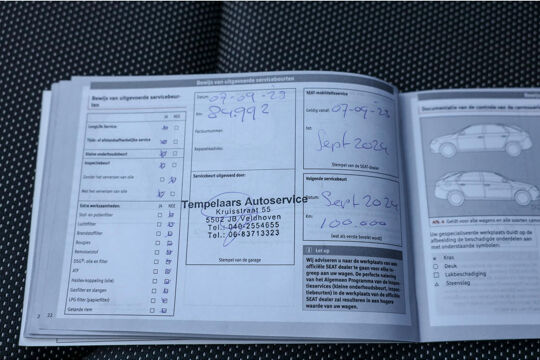 Bewijs van uitgevoerde servicebeurten
Bewijs van uitgevoerde servicebeur-
ten
JA NEE
LongLife Service
Tijds- of afstandsafhankelijke service
Kleine onderhoudsbeurt
Inspectiebeurt
Zonder het verversen van olie
Met het verversen van olie
Extra werkzaamheden: JA NEE
Stof- en pollenfilter
Luchtfilter
Brandstoffilter
Bougies
Remvloeistof
DSG®: olie en filter
ATF
Haldex-koppeling (olie)
Gasfilter en slangen
LPG filter (papierfilter)
Getande riem
22
Datum: 07-09-23
Km: 84.992
Factuurnummer:
Servicebeurt uitgevoerd door:
Tempelaars Autoservice
Kruisstraat 55
5502 JB Veldhoven
Tel.: 040-2554655
Tel.: 06-83713323
Stempel van de garage
SEAT mobiliteitsservice
Geldig vanaf: 07-09-23
tot:
Sept 2024
Stempel van de SEAT-dealer
Volgende servicebeurt
Datum: Sept 2024
Km: 100.000
(wat als eerste bereikt wordt)
Let op
Wij adviseren u naar de werkplaats van een
officiële SEAT dealer te gaan voor elke in-
greep aan uw wagen. De perfecte naleving
van het Algemeen Programma van de Inspec-
tieservices (kleine onderhoudsbeurt, inspec-
tiebeurten) in de werkplaats van de officiële
SEAT dealer zal resulteren in een hogere
waarde van uw wagen.
Documentatie van de controle van de carrosserie
Geldt voor alle wagens en alle soorten carros
Uw gespecialiseerde werkplaats duidt op de
afbeelding de beschadigde onderdelen aan
met onderstaande symbolen:
Kras
Deuk
Lakbeschadiging
Steenslag